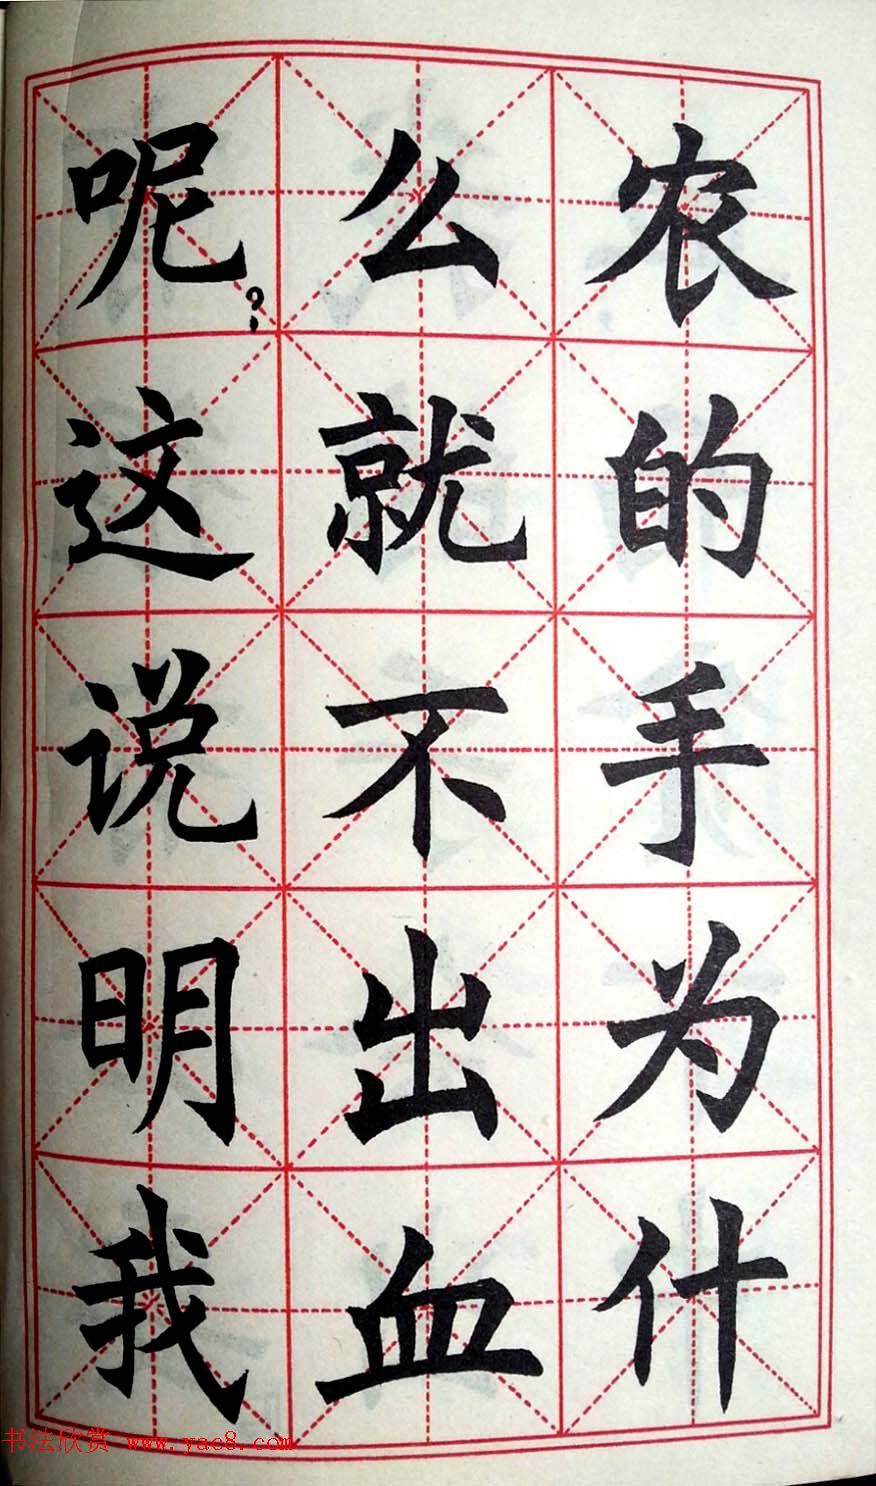 农的手为什
么就不出血
呢？这说明我
书法欣赏 www.yac8.com